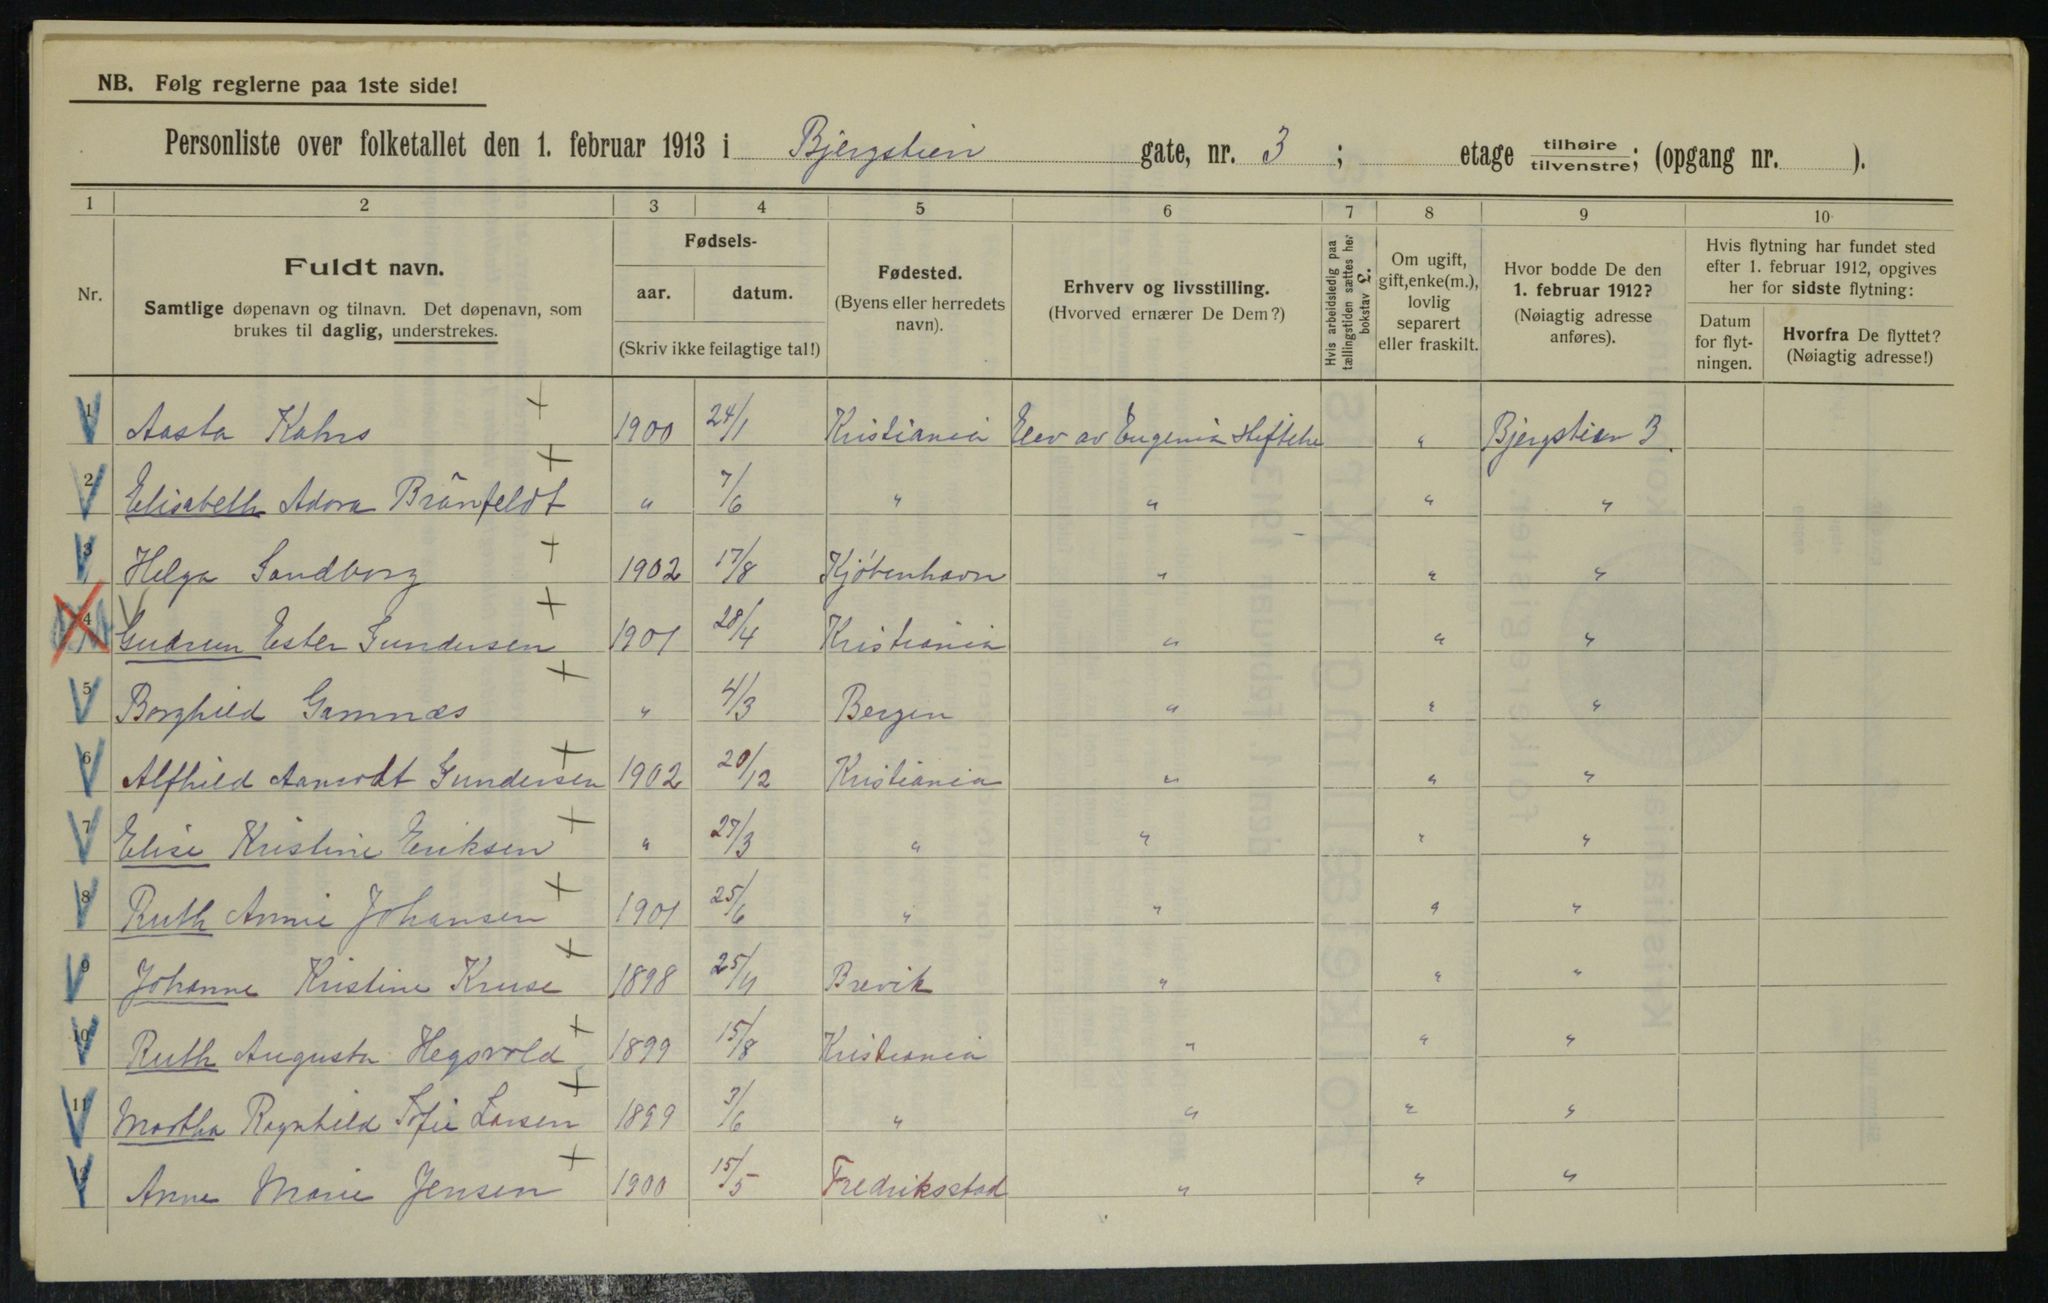 NB. Følg reglerne paa 1ste side!
Personliste over folketallet den 1. februar 1913 i Bjergstien gate, nr. 3; etage tilhøire tilvenstre; (opgang nr. ).
1 2 3 4 5 6 7 8 9 10
Nr.
Fuldt navn.
Samtlige døpenavn og tilnavn. Det døpenavn, som
brukes til daglig, understrekes.
Fødsels-
aar. datum.
(Skriv ikke feilagtige tal!)
Fødested.
(Byens eller herredets
navn).
Erhverv og livsstilling.
(Hvorved ernærer De Dem?)
Hvis arbeidsledig paa
tællingstiden sættes her
bokstav L.
Om ugift,
gift, enke(m.),
lovlig
separert
eller fraskilt.
Hvor bodde De den
1. februar 1912?
(Nøiagtig adresse
anføres).
Hvis flytning har fundet sted
efter 1. februar 1912, opgives
her for sidste flytning:
Datum
for flyt-
ningen.
Hvorfra De flyttet?
(Nøiagtig adresse!)
1 Aasta Kahrs 1900 24/1 Kristiania Elev av Eugenia Stiftelse " Bjergstien 3.
2 Elisabeth Adora Brånfeldt " 7/6 " " " "
3 Helga Sandborg 1902 17/8 Kjøbenhavn " " "
4 Gudrun Ester Gundersen 1901 28/4 Kristiania " " "
5 Borghild Gamnæs " 4/3 Bergen " " "
6 Alfhild Aamodt Gundersen 1902 20/12 Kristiania " " "
7 Elise Kristine Eriksen " 27/3 " " " "
8 Ruth Annie Johansen 1901 25/6 " " " "
9 Johanne Kristine Kruse 1898 25/11 Brevik " " "
10 Ruth Augusta Hegsvold 1899 15/8 Kristiania " " "
11 Martha Ragnhild Sofie Larsen 1899 3/6 " " " "
12 Anne Marie Jensen 1900 15/5 Fredriksstad " " "